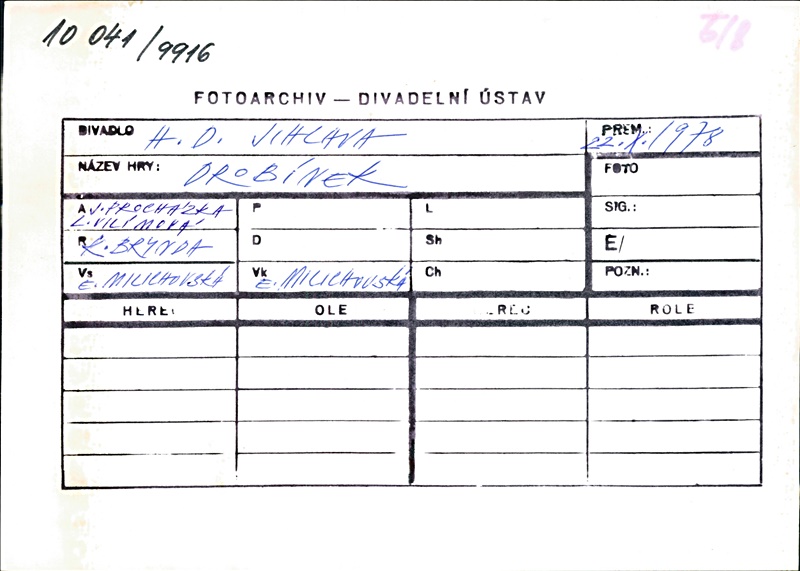 10 041/9916
5/8
FOTOARCHIV — DIVADELNÍ ÚSTAV
DIVADLO H. D. JIHLAVA
PREM.: 22.X./1978
NÁZEV HRY: DROBÍNEK
FOTO
A J. PROCHÁZKA
L. VILÍMOVÁ
P
L
SIG.:
R K. BRYNDA
D
Sh
E/
Vs E. MILICHOVSKÁ
Vk E. MILICHOVSKÁ
Ch
POZN.:
HEREC OLE EREC ROLE